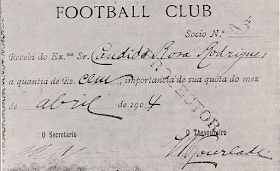 FOOTBALL CLUB
Socio N.º 3
Recebi do Ex.mo Sr. Candido Rosa Rodrigues
a quantia de Rs. cem, importancia de sua quota do mez
de abril de 1904
DIRECTOR
O Secretario O Thesoureiro